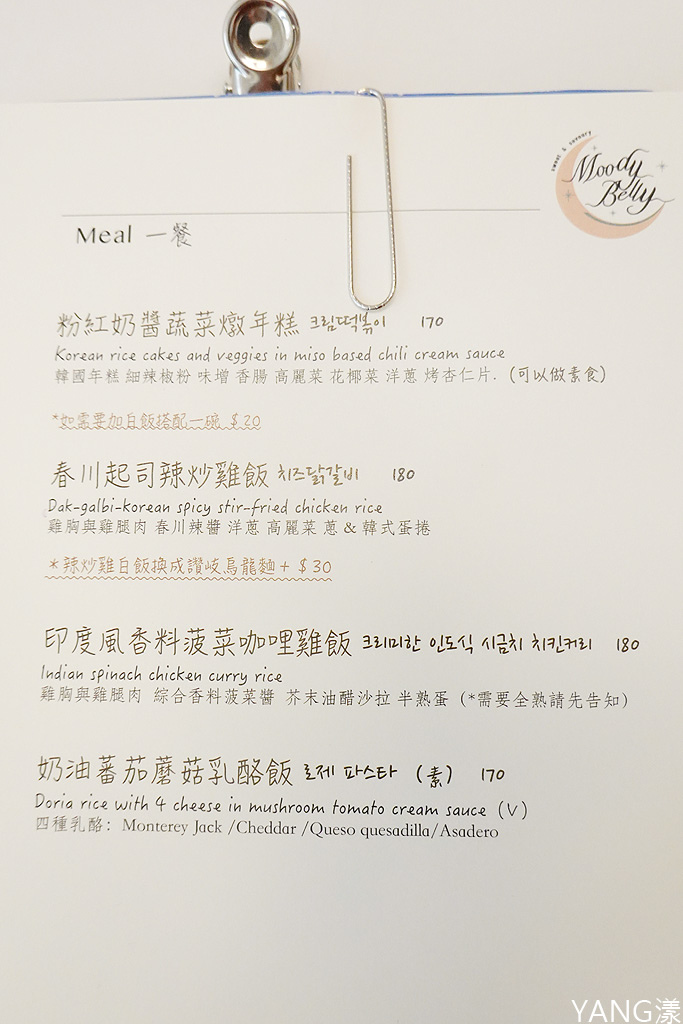 sweet & savoury
Moody
Belly
Meal 一餐
粉紅奶醬蔬菜燉年糕 크림떡볶이 170
Korean rice cakes and veggies in miso based chili cream sauce
韓國年糕 細辣椒粉 味增 香腸 高麗菜 花椰菜 洋蔥 烤杏仁片. (可以做素食)
*如需要加白飯搭配一碗 $20
春川起司辣炒雞飯 치즈닭갈비 180
Dak-galbi-korean spicy stir-fried chicken rice
雞胸與雞腿肉 春川辣醬 洋蔥 高麗菜 蔥 & 韓式蛋捲
*辣炒雞白飯換成讚岐烏龍麵+ $30
印度風香料菠菜咖哩雞飯 크리미한 인도식 시금치 치킨커리 180
Indian spinach chicken curry rice
雞胸與雞腿肉 綜合香料菠菜醬 芥末油醋沙拉 半熟蛋 (*需要全熟請先告知)
奶油蕃茄蘑菇乳酪飯 로제 파스타 (素) 170
Doria rice with 4 cheese in mushroom tomato cream sauce (V)
四種乳酪: Monterey Jack /Cheddar /Queso quesadilla/Asadero
YANG漾